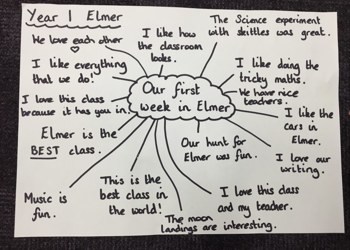 Year 1 Elmer
We love each other
I like how
the classroom
looks.
The Science experiment
with skittles was great.
I like everything
that we do!
I like doing the
tricky maths.
I love this class
because it has you in.
Our first
week in Elmer
We have nice
teachers.
I like the
cars in
Elmer.
Elmer is the
BEST class.
Our hunt for
Elmer was fun.
I love our
writing.
Music is
fun.
This is the
best class in
the world!
The moon
landings are interesting.
I love this class
and my teacher.